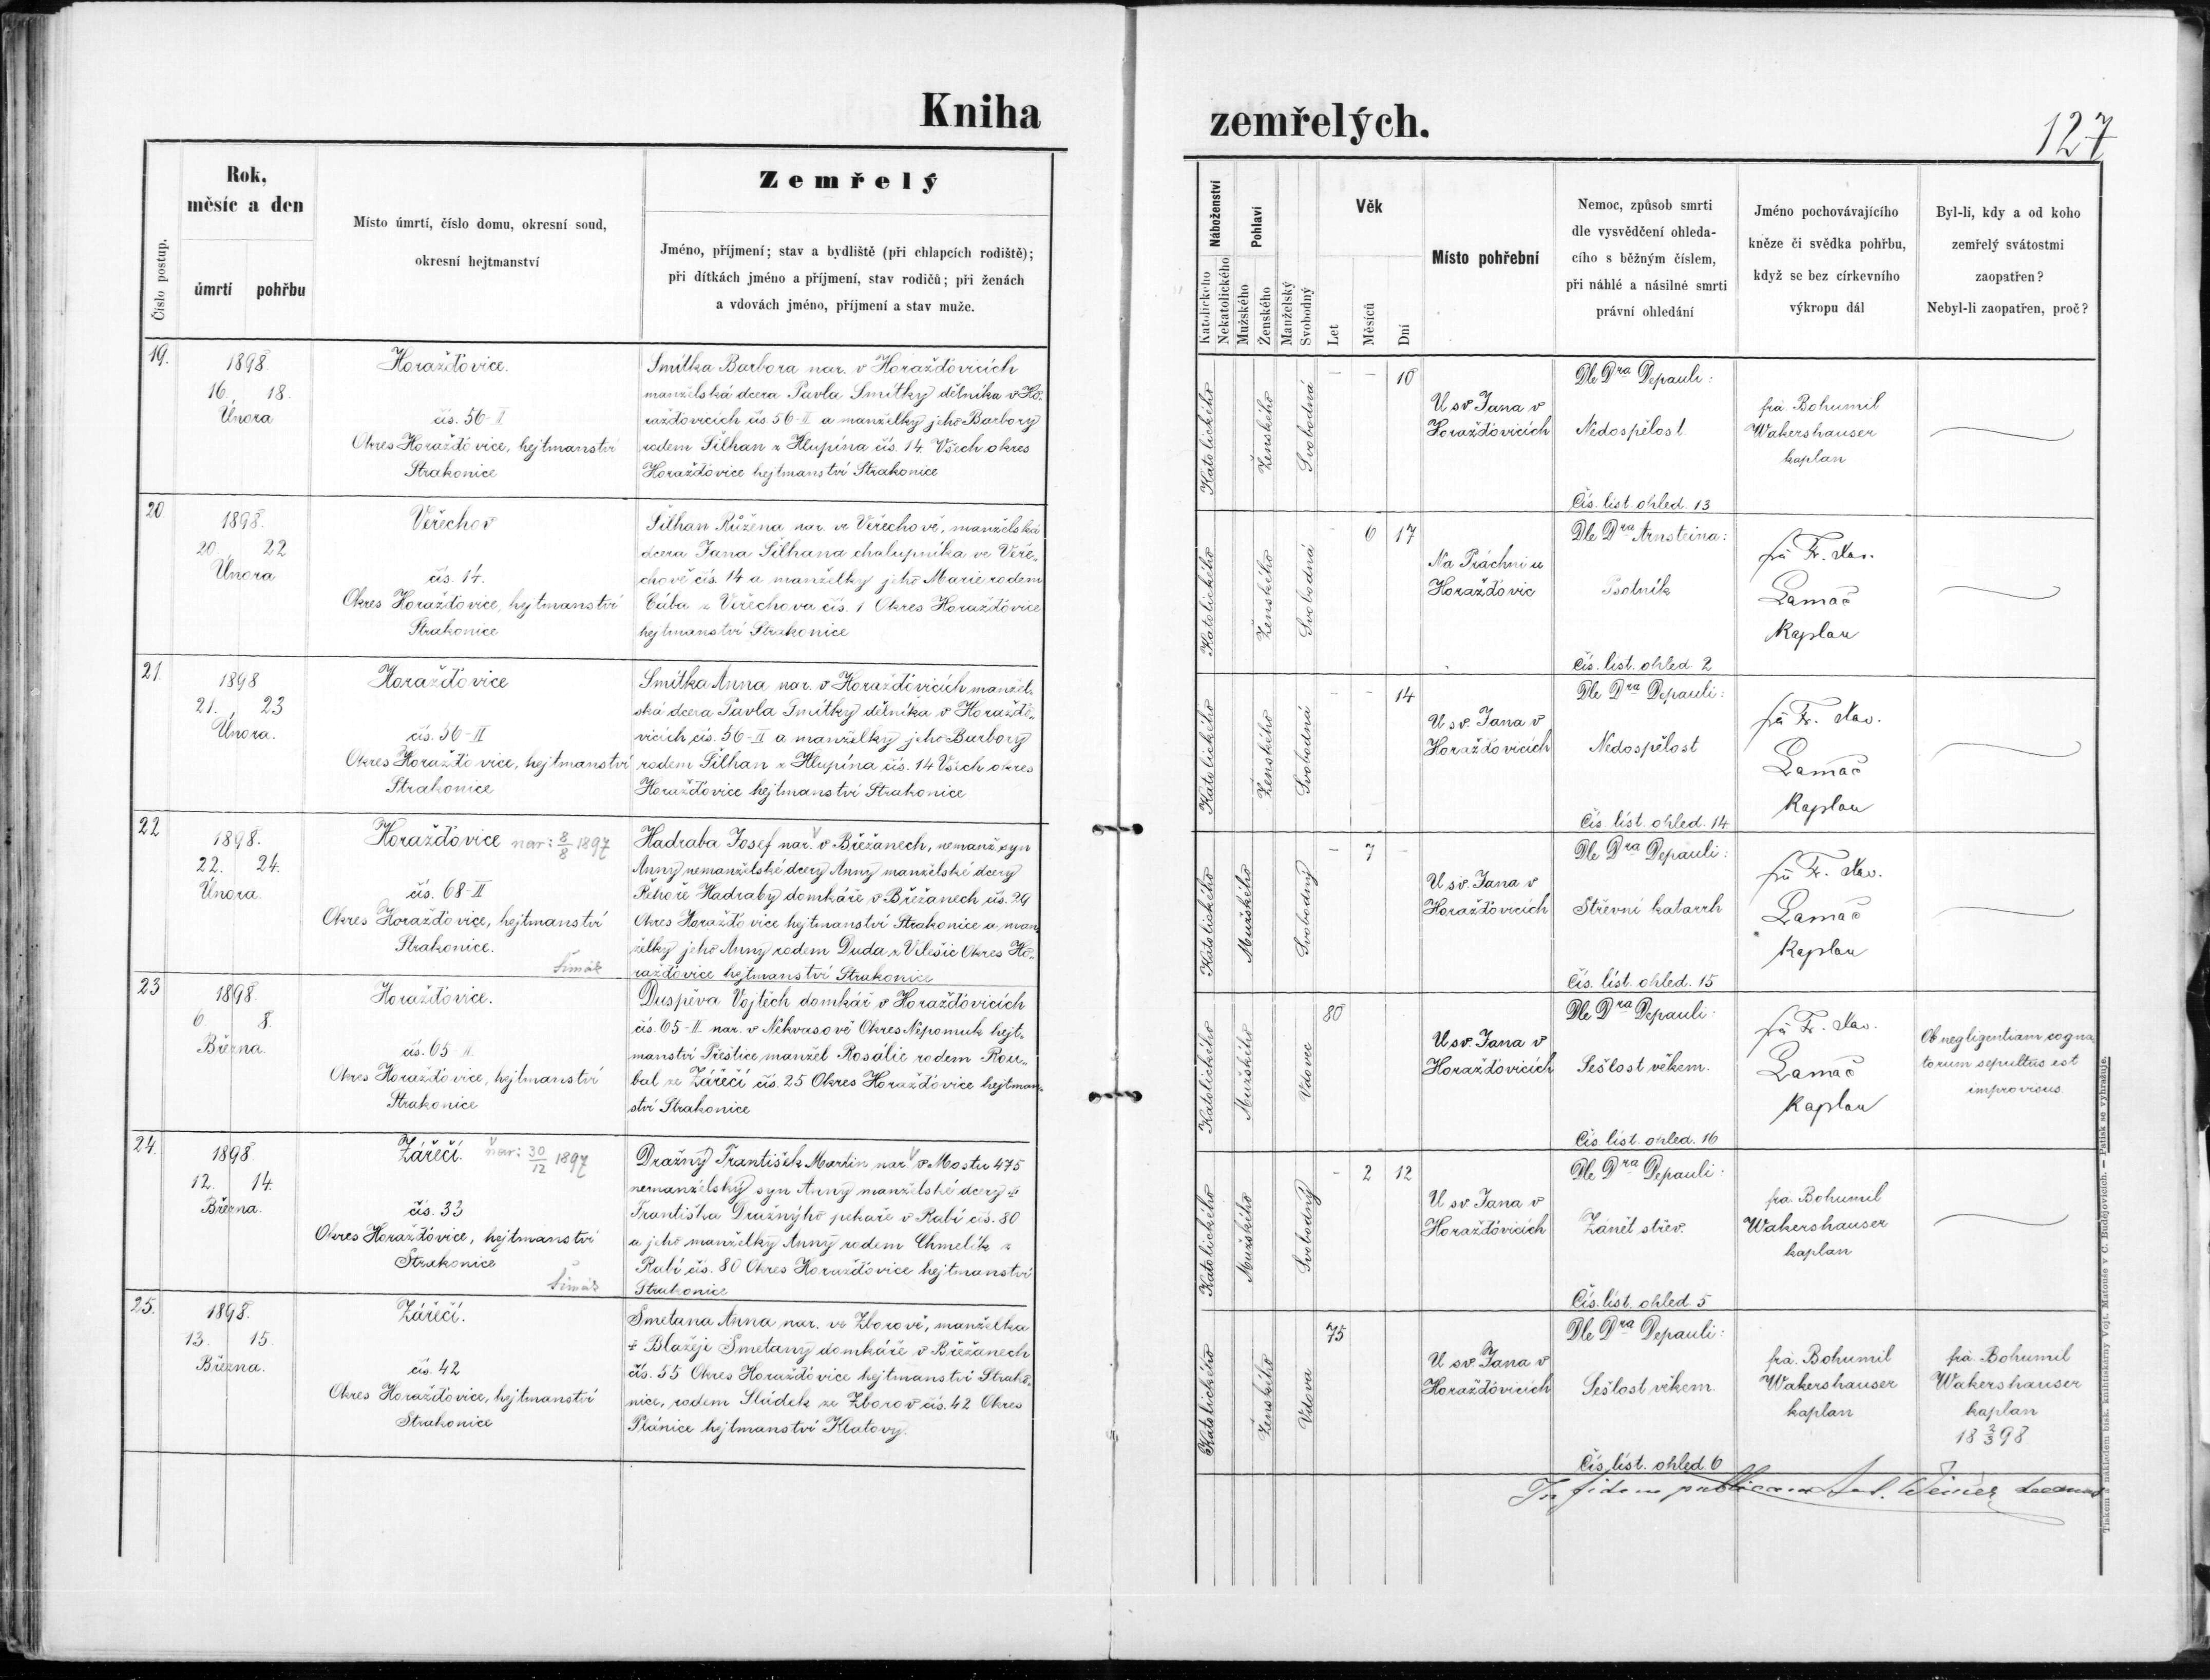 Kniha
zemřelých.
127
Číslo postup.
Rok,
měsíc a den
úmrtí pohřbu
Místo úmrtí, číslo domu, okresní soud,
okresní hejtmanství
Zemřelý
Jméno, příjmení; stav a bydliště (při chlapcích rodiště);
při dítkách jméno a příjmení, stav rodičů; při ženách
a vdovách jméno, příjmení a stav muže.
Náboženství
Katolického
Nekatolického
Pohlaví
Mužského
Ženského
Manželský
Svobodný
Věk
Let
Měsíců
Dní
Místo pohřební
Nemoc, způsob smrti
dle vysvědčení ohleda-
cího s běžným číslem,
při náhlé a násilné smrti
právní ohledání
Jméno pochovávajícího
kněze či svědka pohřbu,
když se bez církevního
výkropu dál
Byl-li, kdy a od koho
zemřelý svátostmi
zaopatřen?
Nebyl-li zaopatřen, proč?
19.
1898
16. 18.
Února
Horažďovice.
čís. 56-II
Okres Horažďovice, hejtmanství
Strakonice
Smitka Barbora nar. v Horažďovicích
manželská dcera Pavla Smitky dělníka v Ho-
ražďovicích čís. 56-II a manželky jeho Barbory
rodem Šilhan z Hlupína čís. 14. Všech okres
Horažďovice hejtmanství Strakonice
Katolického
Ženského
Svobodná
- - 10
U sv. Jana v
Horažďovicích
Dle Dra Depauli:
Nedospělost
Čís. list. ohled. 13
fra. Bohumil
Wakershauser
kaplan
20.
1898.
20. 22
Února
Veřechov
čís. 14.
Okres Horažďovice, hejtmanství
Strakonice
Šilhan Růžena nar. ve Veřechově, manželská
dcera Jana Šilhana chalupníka ve Veře-
chově čís. 14 a manželky jeho Marie rodem
Cába z Veřechova čís. 1 Okres Horažďovice
hejtmanství Strakonice
Katolického
Ženského
Svobodná
- 6 17
Na Práchni u
Horažďovic
Dle Dra Arnsteina:
Psotník
Čís. list. ohled. 2
fra Fr. Xav.
Lamač
Kaplan
21.
1898
21. 23
Února.
Horažďovice
čís. 56-II
Okres Horažďovice, hejtmanství
Strakonice
Smitka Anna nar. v Horažďovicích manžel-
ská dcera Pavla Smitky dělníka v Horaždo-
vicích čís. 56-II a manželky jeho Barbory
rodem Šilhan z Hlupína čís. 14 Všech okres
Horažďovice hejtmanství Strakonice
Katolického
Ženského
Svobodná
- - 14
U sv. Jana v
Horažďovicích
Dle Dra Depauli:
Nedospělost
Čís. list. ohled. 14
fra Fr. Xav.
Lamač
Kaplan
22
1898.
22. 24.
Února.
Horažďovice nar: 8/8 1897
čís. 68-II
Okres Horažďovice, hejtmanství
Strakonice.
Šimák
Hadraba Josef nar. v Břežanech, nemanž. syn
Anny nemanželské dcery Anny manželské dcery
Řehoře Hadraby domkáře v Břežanech čís. 29
Okres Horažďovice hejtmanství Strakonice a man-
želky jeho Anny rodem Duda z Velešic Okres Ho-
ražďovice hejtmanství Strakonice
Katolického
Mužského
Svobodný
- 7 -
U sv. Jana v
Horažďovicích
Dle Dra Depauli:
Střevní katarrh
Čís. list. ohled. 15
fra Fr. Xav.
Lamač
Kaplan
23
1898.
6. 8.
Března.
Horažďovice.
čís. 65-II.
Okres Horažďovice, hejtmanství
Strakonice
Duspěva Vojtěch domkář v Horažďovicích
čís. 65-II nar. v Nekvasově Okres Nepomuk hejt-
manství Přeštice manžel Rosálie rodem Rou-
bal ze Zářečí čís. 25 Okres Horažďovice hejtman-
ství Strakonice
Katolického
Mužského
Vdovec
80
U sv. Jana v
Horažďovicích
Dle Dra Depauli:
Sešlost věkem.
Čís. list. ohled. 16
fra Fr. Xav.
Lamač
Kaplan
Ob negligentiam cogna
torum sepultus est
improvisus.
24.
1898.
12. 14.
Března.
Zářečí. nar: 30/12 1897
čís. 33
Okres Horažďovice, hejtmanství
Strakonice
Šimák
Dražný František Martin nar. v Mostu 475
nemanželský syn Anny manželské dcery †
Františka Dražnýho pekaře v Rabí čís. 80
a jeho manželky Anny rodem Chmelík z
Rabí čís. 80 Okres Horažďovice hejtmanství
Strakonice
Katolického
Mužského
Svobodný
- 2 12
U sv. Jana v
Horažďovicích
Dle Dra Depauli:
Zánět střev.
Čís. list. ohled. 5
fra. Bohumil
Wakershauser
kaplan
25.
1898.
13. 15.
Března.
Zářečí.
čís. 42
Okres Horažďovice, hejtmanství
Strakonice
Smetana Anna nar. ve Zborově, manželka
† Blažeje Smetany domkáře v Břežanech
čís. 55 Okres Horažďovice hejtmanství Strako-
nice, rodem Sládek ze Zborov čís. 42 Okres
Plánice hejtmanství Klatovy.
Katolického
Ženského
Vdova
75
U sv. Jana v
Horažďovicích
Dle Dra Depauli:
Sešlost věkem.
Čís. list. ohled. 6
fra. Bohumil
Wakershauser
kaplan
fra. Bohumil
Wakershauser
kaplan
18 2/3 98
In fidem publicam
Tiskem a nákladem bisk. knihtiskárny Vojt. Matouše v Č. Budějovicích. — Patisk se vyhražuje.